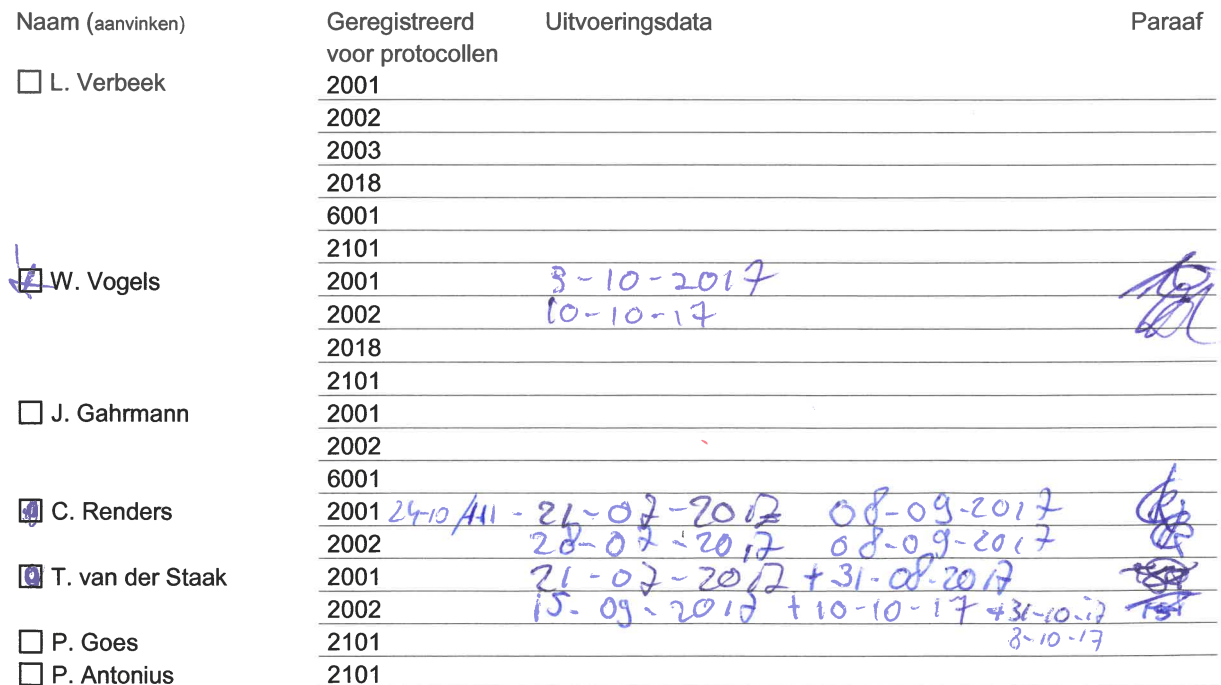 Naam (aanvinken) Geregistreerd voor protocollen Uitvoeringsdata Paraaf
L. Verbeek 2001
2002
2003
2018
6001
2101
W. Vogels 2001 3-10-2017
2002 10-10-17
2018
2101
J. Gahrmann 2001
2002
6001
C. Renders 2001 24-10 - 21-07-2017 08-09-2017
2002 28-07-2017 08-09-2017
T. van der Staak 2001 21-07-2017 + 31-08-2017
2002 15-09-2017 + 10-10-17 + 31-10-17
P. Goes 2101 3-10-17
P. Antonius 2101